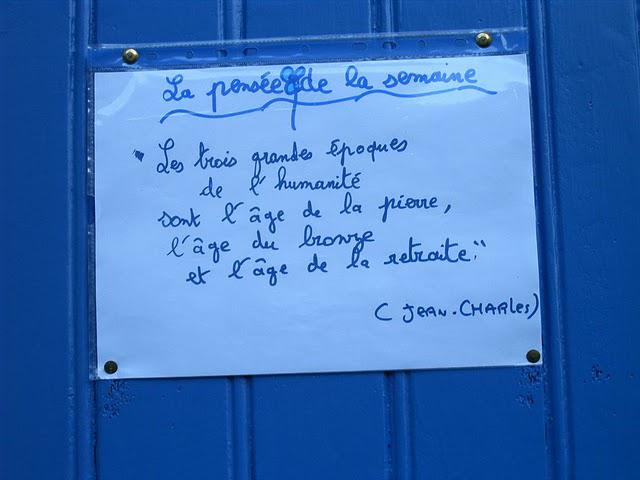 La pensée de la semaine
" Les trois grandes époques
de l'humanité
sont l'âge de la pierre,
l'âge du bronze
et l'âge de la retraite."
( JEAN-CHARLES)